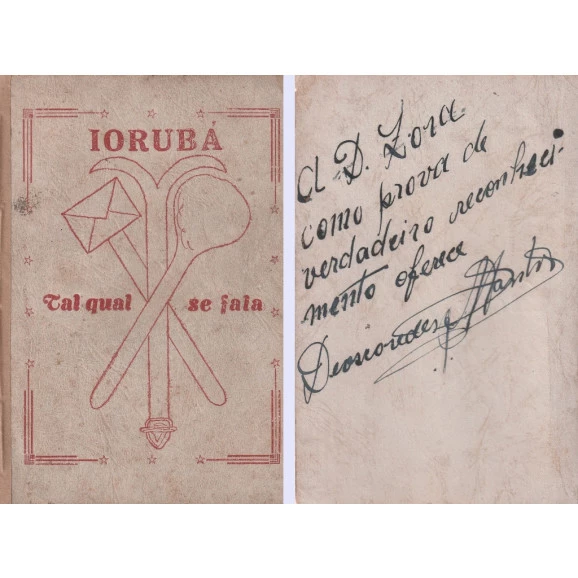 IORUBÁ
Tal qual se fala
A D. Zora
como prova de
verdadeiro reconheci-
mento oferece
Deoscoredes M. Santos